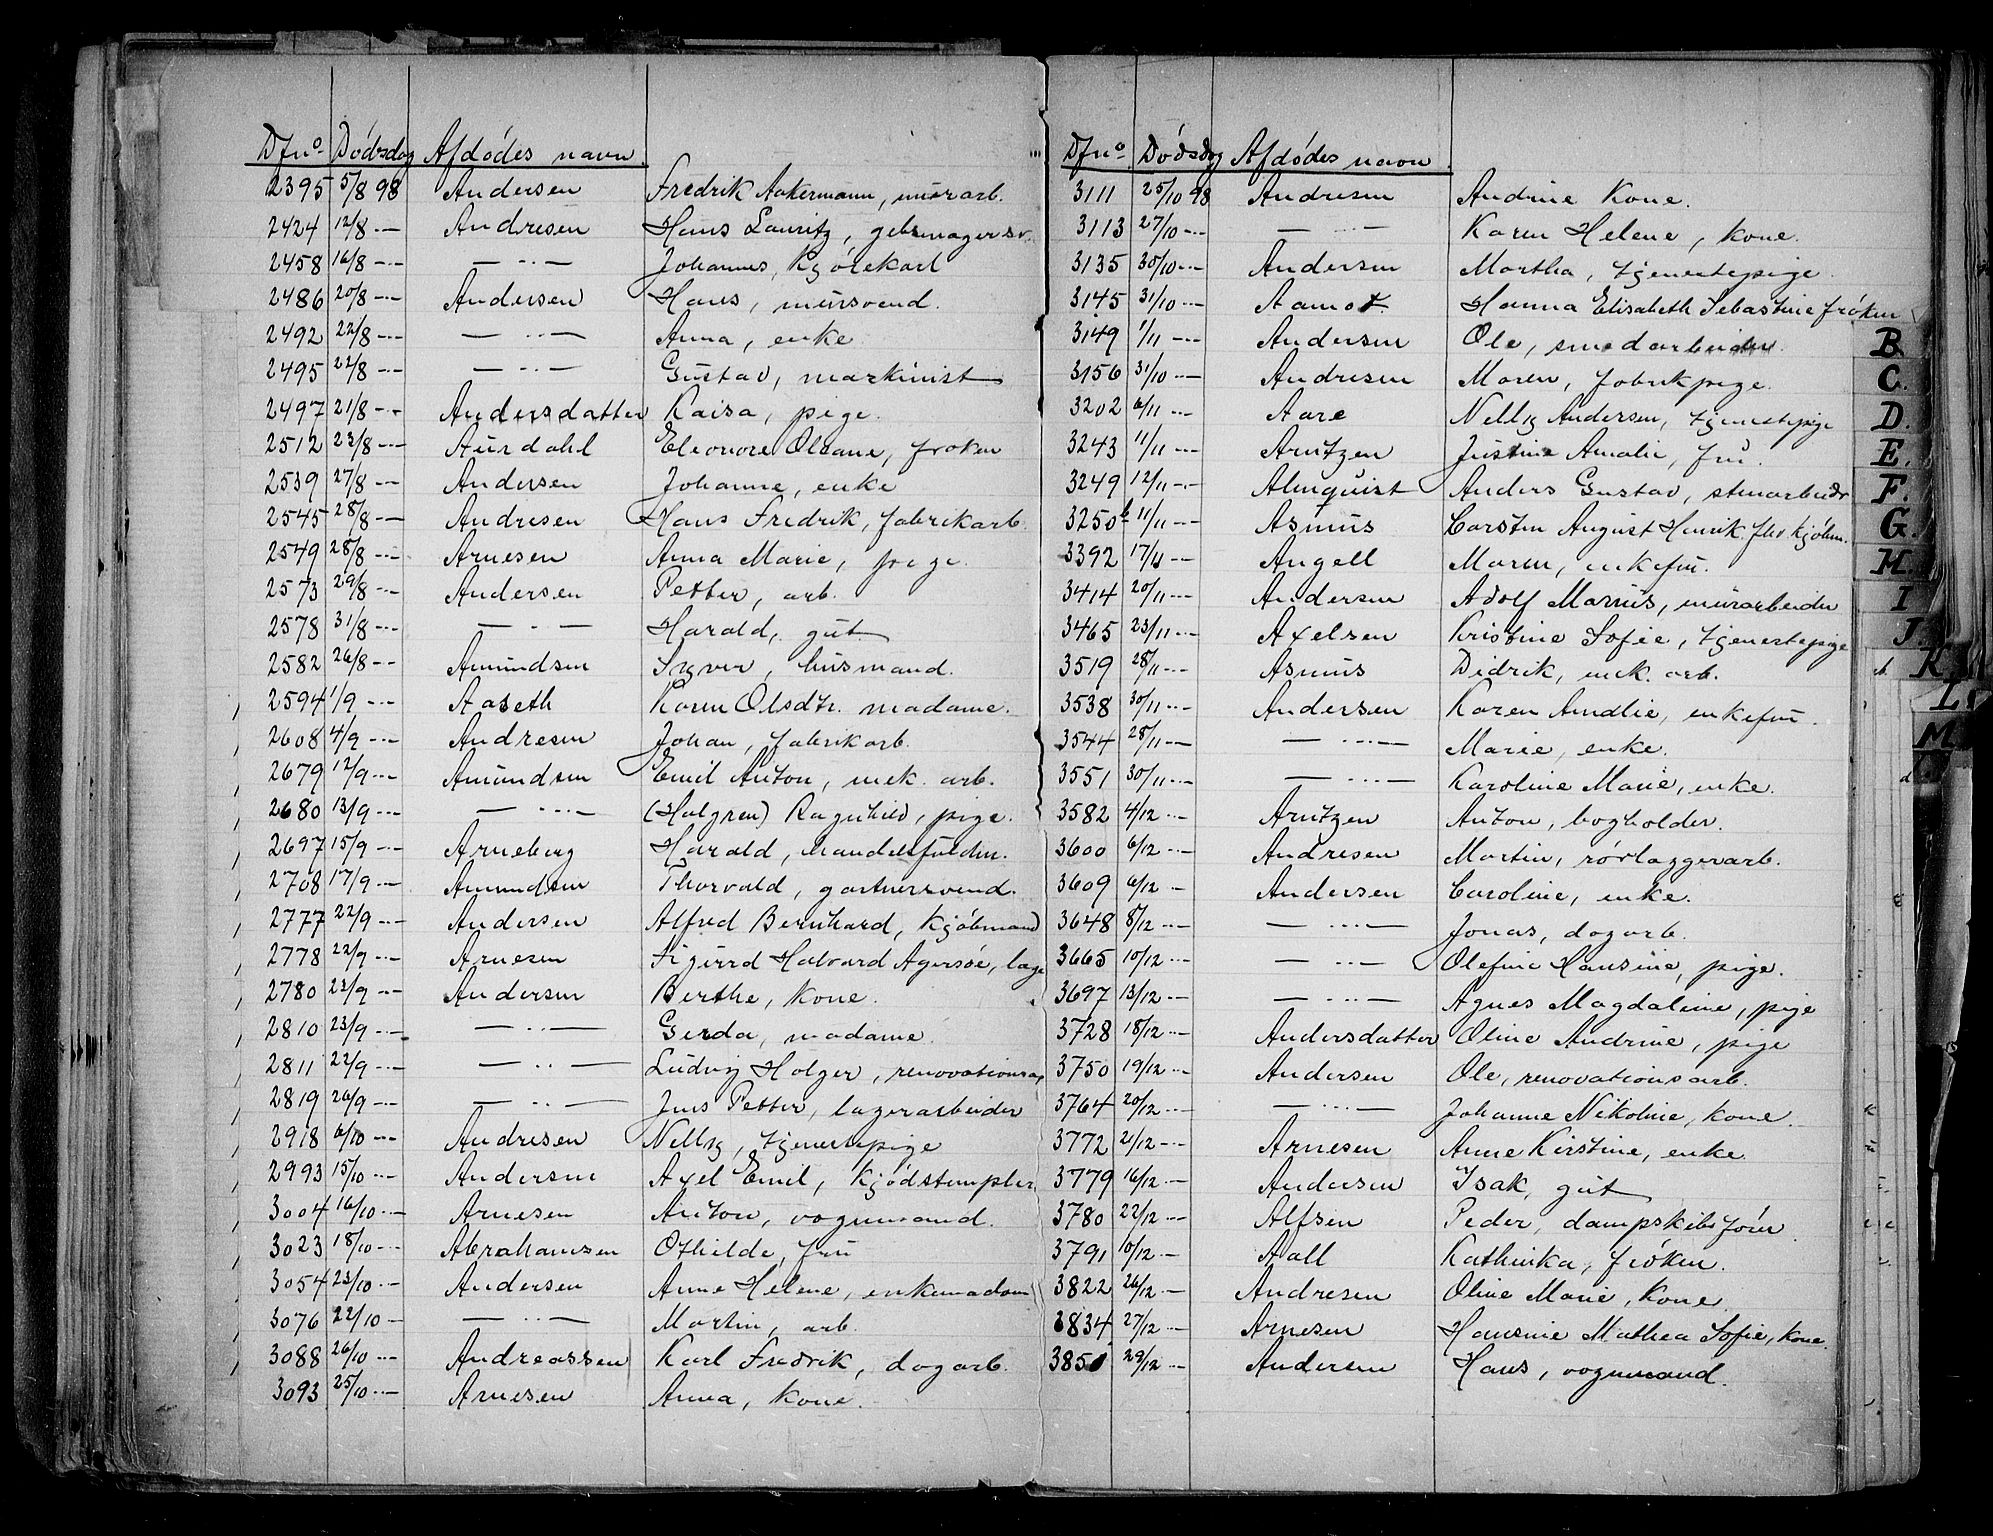 Dfno. Dödsdag Afdödes navn.
2395 5/8 98 Andersen Fredrik Aakermann, murarb.
2424 12/8 -·- Andresen Hans Lauritz, gebrmagersv.
2458 16/8 -·- — ·· — Johannes, Kjörekarl
2486 20/8 -·- Andersen Hans, mursvend.
2492 22/8 -·- — ·· — Anna, enke
2495 22/8 -·- — ·· — Gustav, markinist
2497 21/8 -·- Andersdatter Kaisa, pige.
2512 23/8 -·- Aurdahl Eleonore Oleane, froken
2539 27/8 -·- Andersen Johanne, enke
2545 28/8 -·- Andresen Hans Fredrik, fabrikarb.
2549 28/8 -·- Arnesen Anna Marie, pige.
2573 29/8 -·- Andersen Petter, arb.
2578 31/8 -·- — ·· — Harald, gut
2582 26/8 -·- Amundsen Syver, husmand.
2594 1/9 -·- Aaseth Karen Olsdtr. madame.
2608 4/9 -·- Andresen Johan, fabrikarb.
2679 12/9 -·- Amundsen Emil Anton, mek. arb.
2680 13/9 -·- — ·· — (Holgren) Ragnhild, pige.
2697 15/9 -·- Arneberg Harald, handelsfuldm.
2708 17/9 -·- Amundsen Thorvald, gartnersvend.
2777 22/9 -·- Andersen Alfred Bernhard, Kjöbmand
2778 22/9 -·- Arnesen Sigurd Halvard Agersöe, læge
2780 22/9 -·- Andersen Berthe, Kone.
2810 23/9 -·- — ·· — Gerda, madame.
2811 22/9 -·- — ·· — Ludvig Holger, renovationsarb
2819 26/9 -·- — ·· — Jens Petter, lagerarbeider
2918 6/10 -·- Andresen Nelly, tjenestepige
2993 15/10 -·- Andersen Axel Emil, Kjödstempler
3004 16/10 -·- Arnesen Anton, vognmand.
3023 18/10 -·- Abrahamsen Othilde, fru
3054 23/10 -·- Andersen Anne Helene, enkemadam
3076 22/10 — — ·· — Martin, arb.
3088 26/10 -·- Andreassen Karl Fredrik, dagarb.
3093 25/10 -·- Arnesen Anna, Kone.
Dfno. Dödsdag Afdödes navn.
3111 25/10 98 Andresen Andrine Kone.
3113 27/10 -·- — ·· — Karen Helene, Kone.
3135 30/10 -·- Andersen Martha, tjenestepige.
3145 31/10 -·- Aamot. Hanna Elisabeth Sebastine fröken
3149 1/11 -·- Andersen Ole, smedarbeider.
3156 31/10 -·- Andresen Maren, fabrikpige.
3202 6/11 -·- Aare Nelly Andersen, tjenestepige
3243 11/11 -·- Arntzen Justine Amalie, fru.
3249 12/11 -·- Almquist Anders Gustav, stenarbeidr
3250b 11/11 -·- Asmus Carsten August Henrik. fhv. kjöbm.
3392 17/11 -·- Angell Maren, enkefru.
3414 20/11 -·- Andersen Adolf Marius, murarbeider
3465 23/11 -·- Axelsen Kristine Sofie, tjenestepige
3519 28/11 -·- Asmus Didrik, mek. arb.
3538 30/11 -·- Andersen Karen Amalie, enkefru.
3544 28/11 -·- — ·· — Marie, enke.
3551 30/11 -·- — ·· — Karoline Marie, enke.
3582 4/12 -·- Arntzen Anton, bogholder.
3600 6/12 -·- Andresen Martin, rörlæggerarb.
3609 6/12 - Andersen Caroline, enke.
3648 8/12 -·- — ·· — Jonas, dagarb.
3665 10/12 -·- — ·· — Olefine Hansine, pige.
3697 13/12 -·- — ·· — Agnes Magdalene, pige
3728 18/12 -·- Andersdatter Oline Andrine, pige
3750 19/12 -·- Andersen Ole, renovationsarb.
3764 20/12 -·- — ·· — Johanne Nikoline, Kone.
3772 21/12 -·- Arnesen Anne Kirstine, enke
3779 16/12 -·- Andersen Isak, gut
3780 22/12 -·- Alfsen Peder, dampskibsförer
3791 10/12 - Aall Kathinka, fröken.
3822 26/12 -·- Andresen Oline Marie, Kone
3834 27/12 -·- Arnesen Hansine Mathea Sofie, Kone.
3850 29/12 -·- Andersen Hans, vognmand.
B.
C.
D.
E.
F.
G.
H.
I
J.
K
L
M